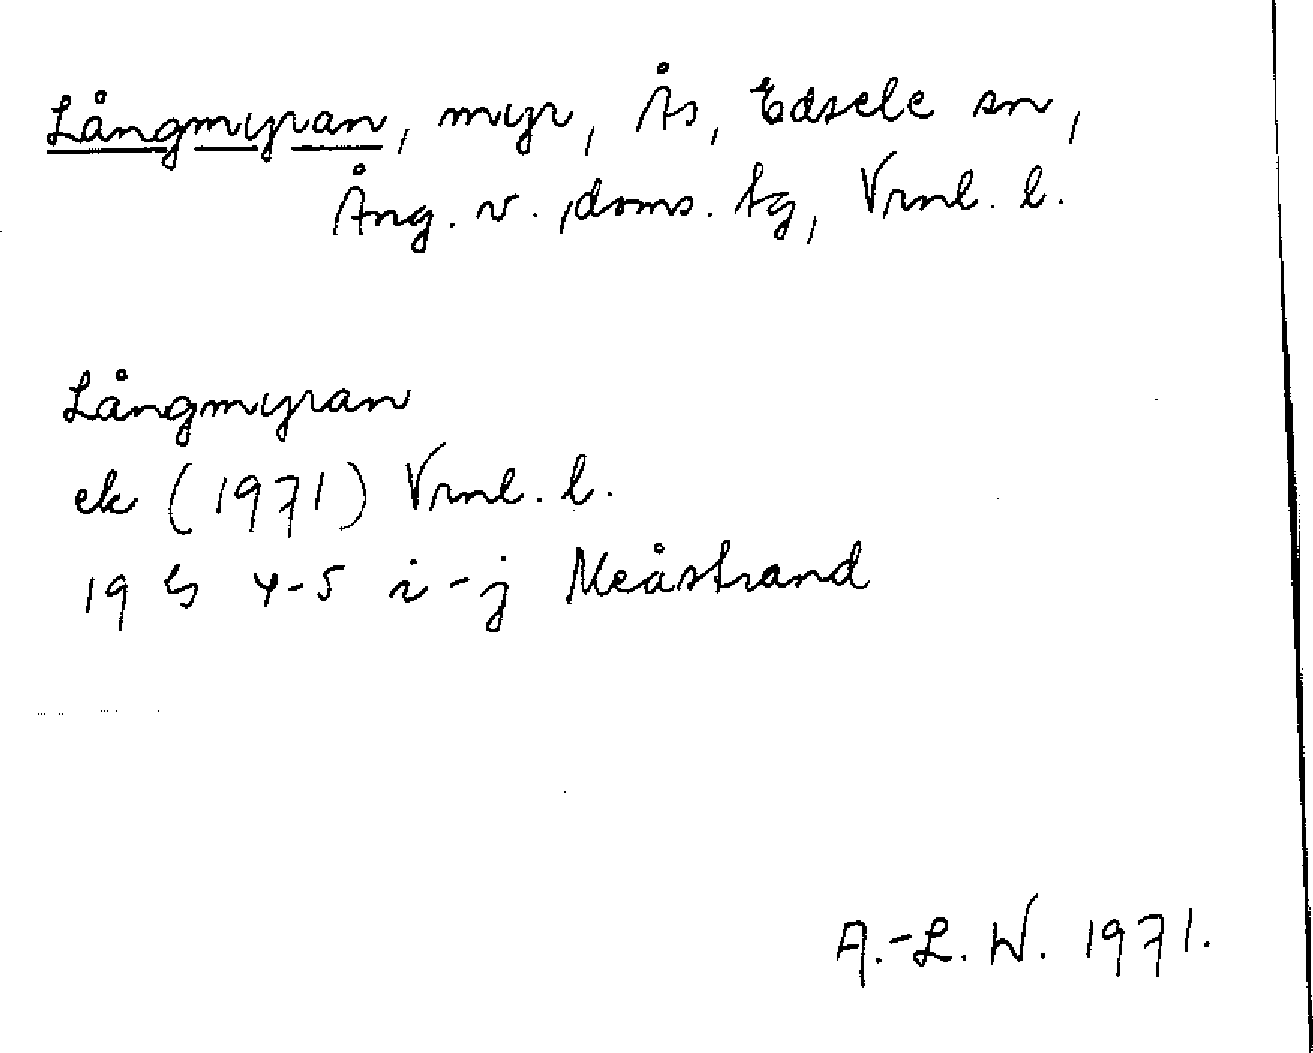 Långmyran, myr, Ås, Edsele sn,
Ång. v. doms. tg, Vrnl. l.
Långmyran
ek (1971) Vrnl. l.
19 G 4-5 i-j Meåstrand
A.-L. W. 1971.